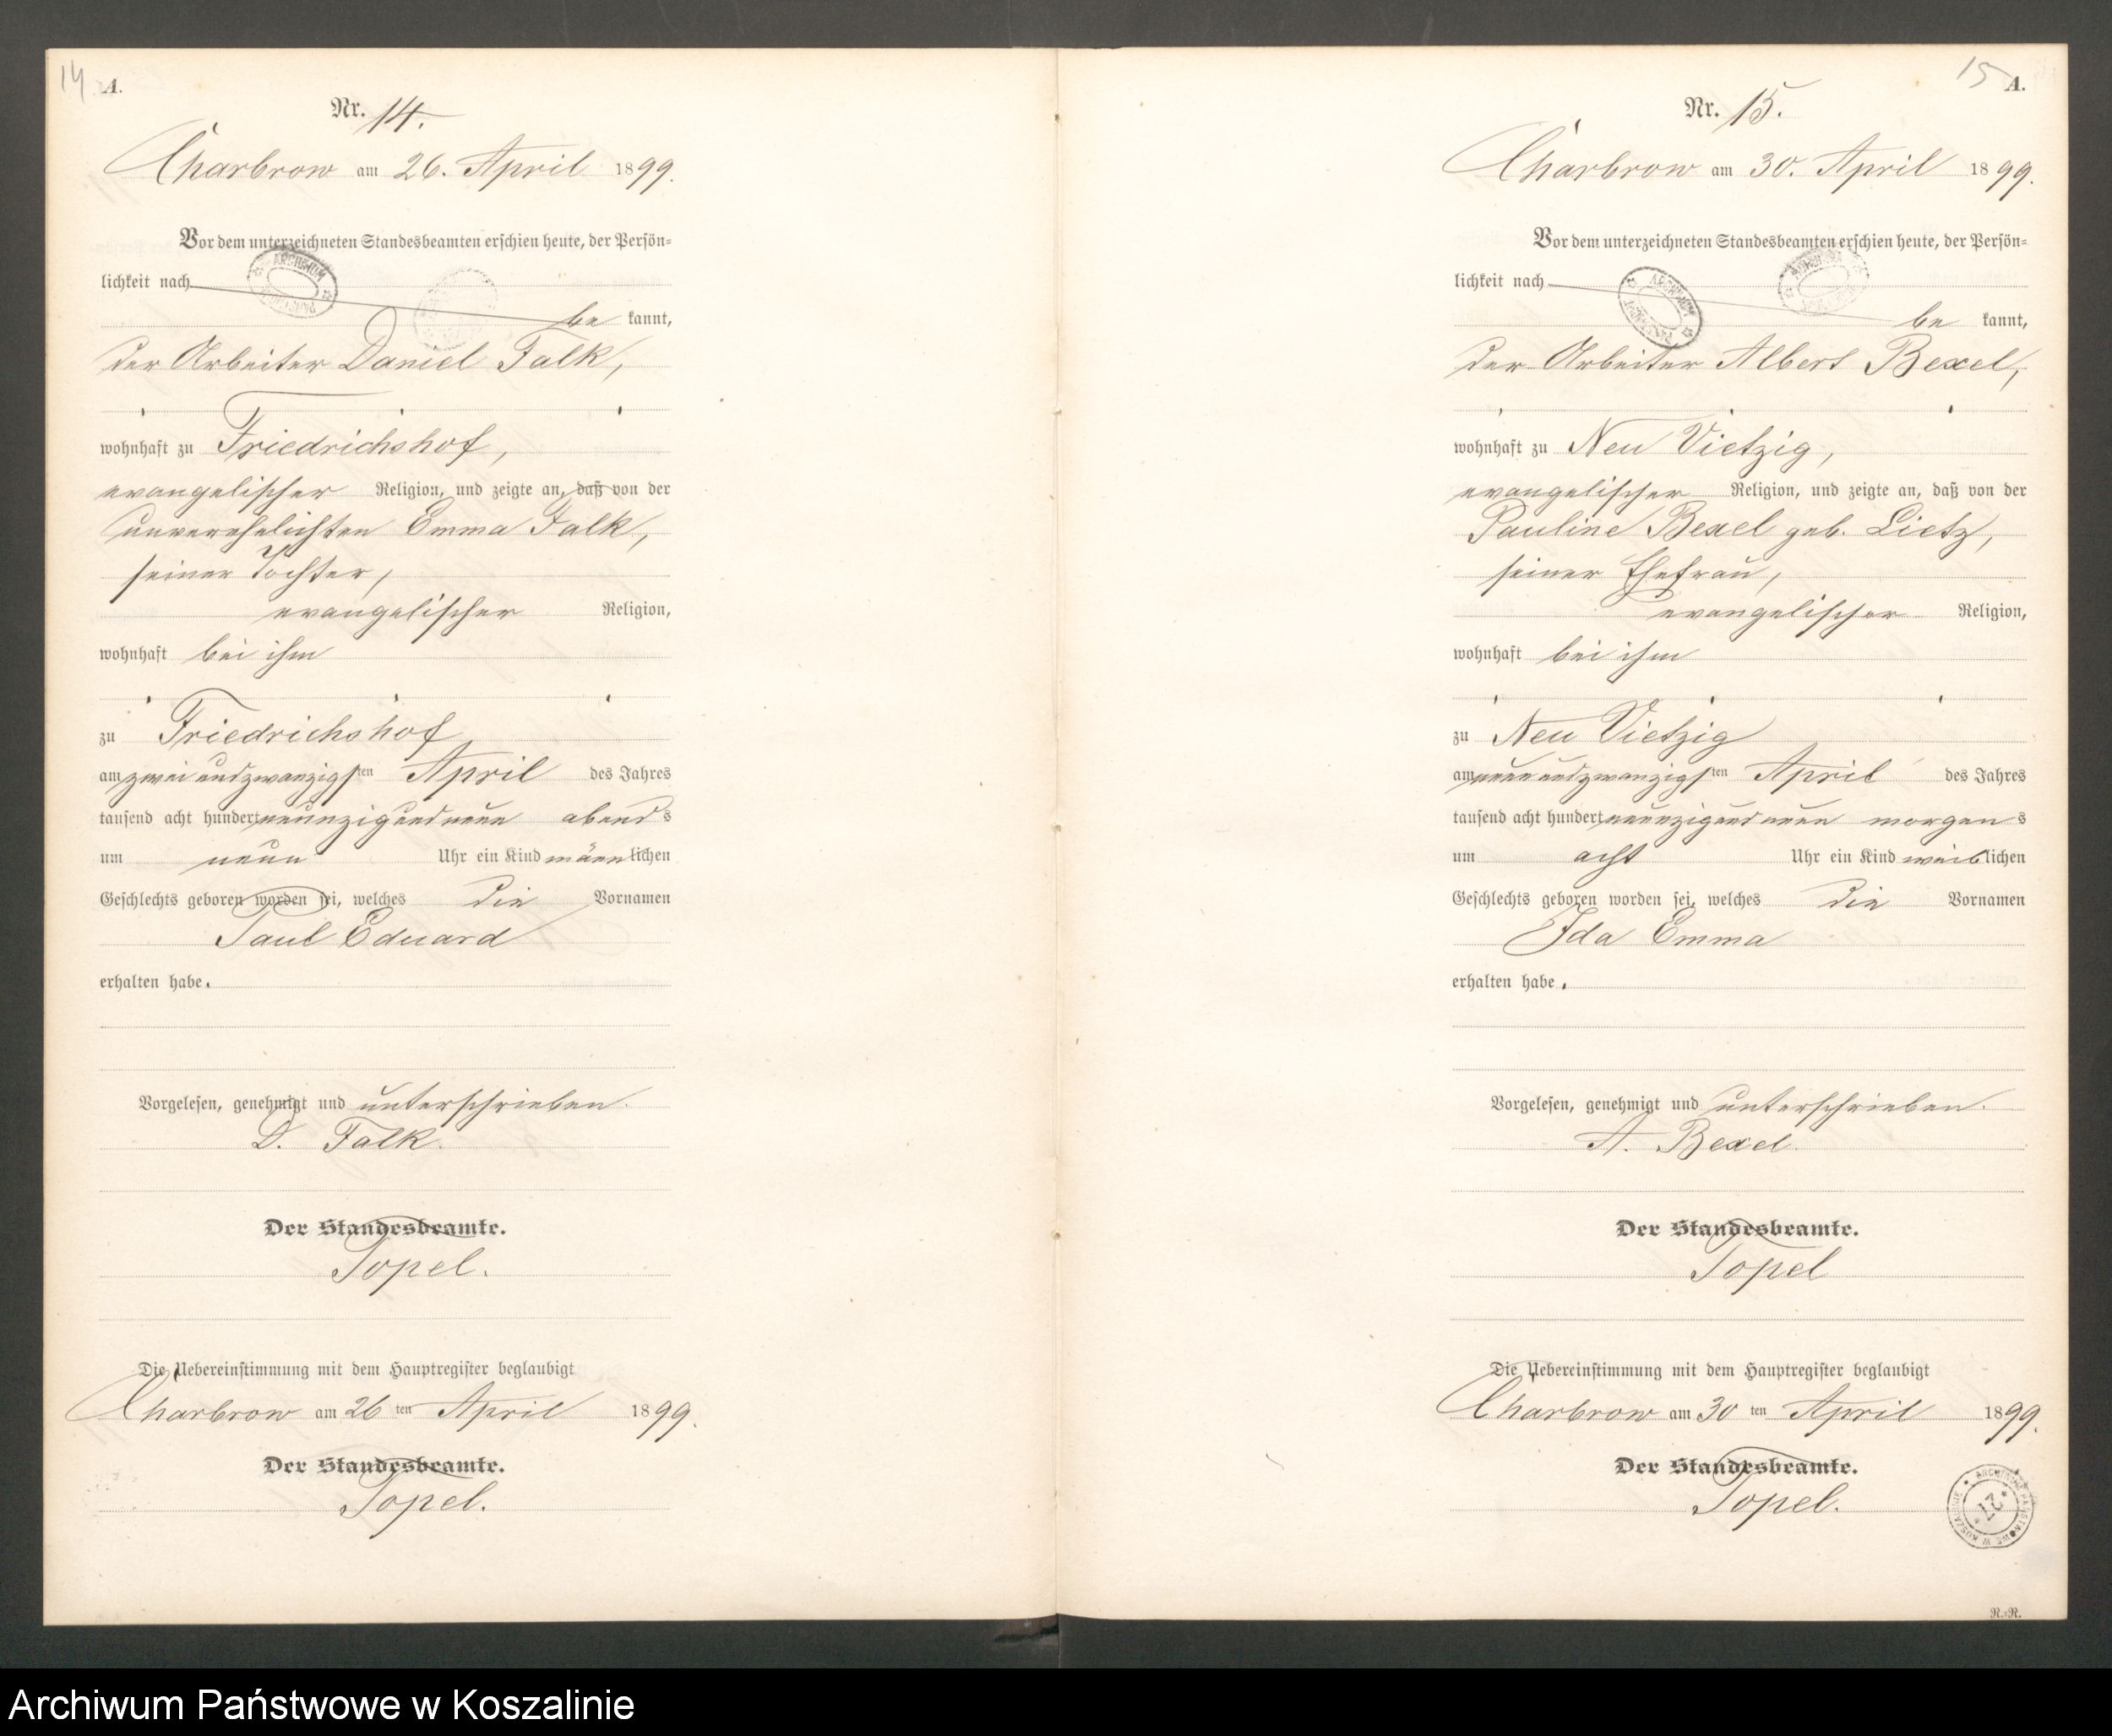 14
A.
Nr. 14.
Charbrow am 26. April 1899.
Vor dem unterzeichneten Standesbeamten erschien heute, der Persön=
lichkeit nach
be kannt,
der Arbeiter Daniel Falk,
wohnhaft zu Friedrichshof,
evangelischer Religion, und zeigte an, daß von der
unverehelichten Emma Falk,
seiner Tochter,
evangelischer Religion,
wohnhaft bei ihm
zu Friedrichshof
am zwei und zwanzigsten April des Jahres
tausend acht hundert neunzig und neun abends
um neun Uhr ein Kind männlichen
Geschlechts geboren worden sei, welches die Vornamen
Paul Eduard
erhalten habe.
Vorgelesen, genehmigt und unterschrieben.
D. Falk.
Der Standesbeamte.
Topel.
Die Uebereinstimmung mit dem Hauptregister beglaubigt
Charbrow am 26ten April 1899.
Der Standesbeamte.
Topel.
15
A.
Nr. 15.
Charbrow am 30. April 1899.
Vor dem unterzeichneten Standesbeamten erschien heute, der Persön=
lichkeit nach
be kannt,
der Arbeiter Albert Bexel,
wohnhaft zu Neu Vietzig,
evangelischer Religion, und zeigte an, daß von der
Pauline Bexel geb. Lietz,
seiner Ehefrau,
evangelischer Religion,
wohnhaft bei ihm
zu Neu Vietzig
am neun und zwanzigsten April des Jahres
tausend acht hundert neunzig und neun morgens
um acht Uhr ein Kind weiblichen
Geschlechts geboren worden sei, welches die Vornamen
Ida Emma
erhalten habe.
Vorgelesen, genehmigt und unterschrieben.
A. Bexel.
Der Standesbeamte.
Topel
Die Uebereinstimmung mit dem Hauptregister beglaubigt
Charbrow am 30ten April 1899.
Der Standesbeamte.
Topel.
ARCHIWUM PAŃSTWOWE W KOSZALINIE
27
R.=R.
Archiwum Państwowe w Koszalinie